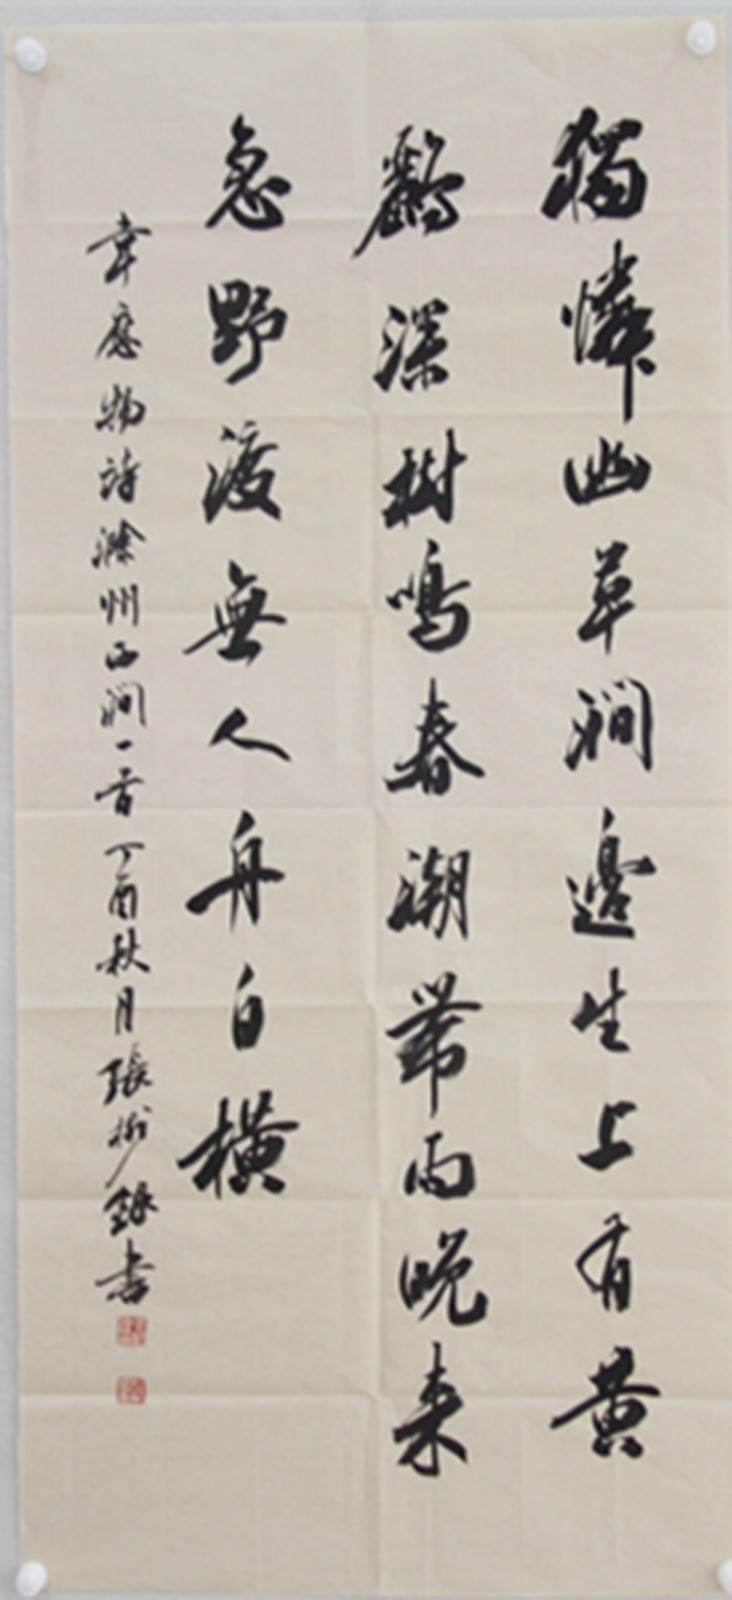 獨憐幽草澗邊生上有黃
鸝深樹鳴春潮帶雨晚來
急野渡無人舟自橫
韋應物詩滁州西澗一首丁酉秋月張彬錄書